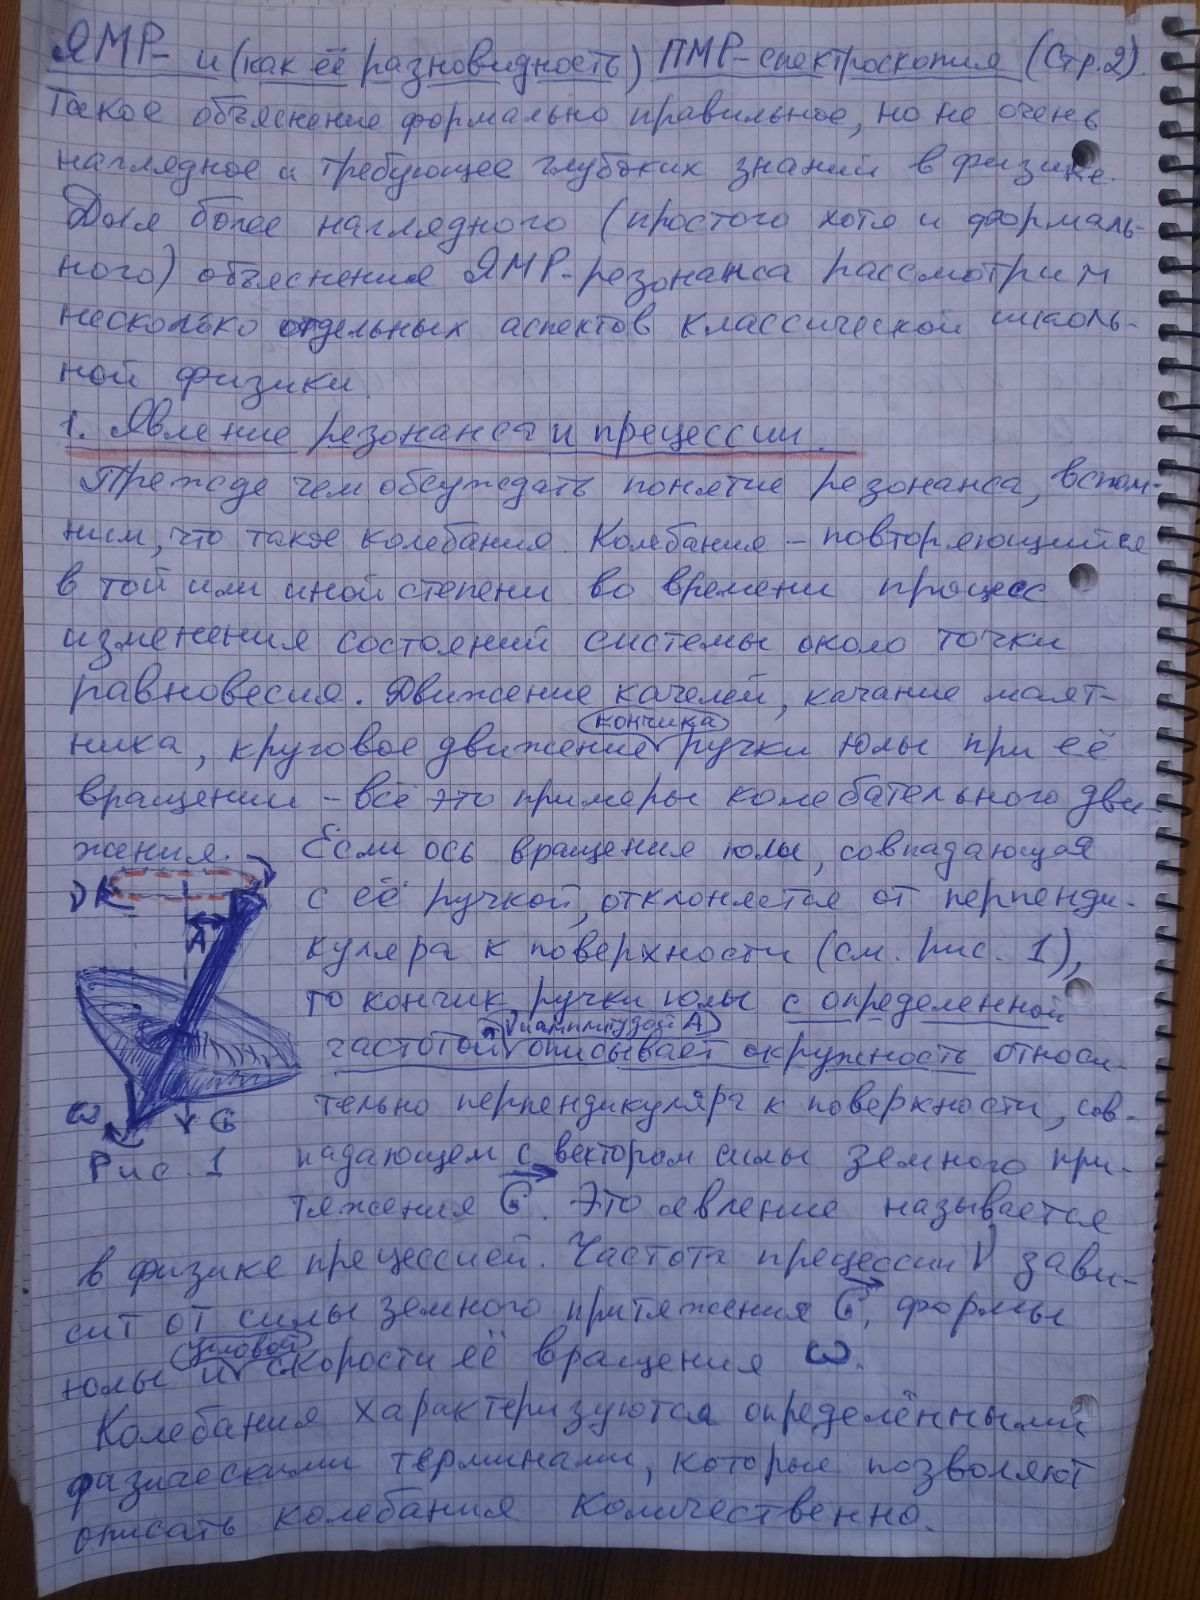 ЯМР- и (как её разновидность) ПМР-спектроскопия (Стр.2).
Такое объяснение формально правильное, но не очень
наглядное и требующее глубоких знаний в физике.
Для более наглядного (простого хотя и формаль-
ного) объяснения ЯМР-резонанса рассмотрим
несколько отдельных аспектов классической школь-
ной физики.
1. Явление резонанса и прецессии.
Прежде чем обсуждать понятие резонанса, вспом-
ним, что такое колебания. Колебания – повторяющийся
в той или иной степени во времени процесс
изменения состояний системы около точки
равновесия. Движение качелей, качание маят-
кончика
ника, круговое движение ручки юлы при её
вращении – всё это примеры колебательного дви-
жения. Если ось вращения юлы, совпадающая
ν
с её ручкой, отклоняется от перпенди-
A
куляра к поверхности (см. рис. 1),
то кончик ручки юлы с определенной
ν и амплитудой A
частотой описывает окружность относи-
тельно перпендикуляра к поверхности, сов-
ω G
падающем с вектором силы земного при-
Рис. 1
тяжения G. Это явление называется
в физике прецессией. Частота прецессии ν зави-
сит от силы земного притяжения G, формы
угловой
юлы и скорости её вращения ω.
Колебания характеризуются определёнными
физическими терминами, которые позволяют
описать колебания количественно.